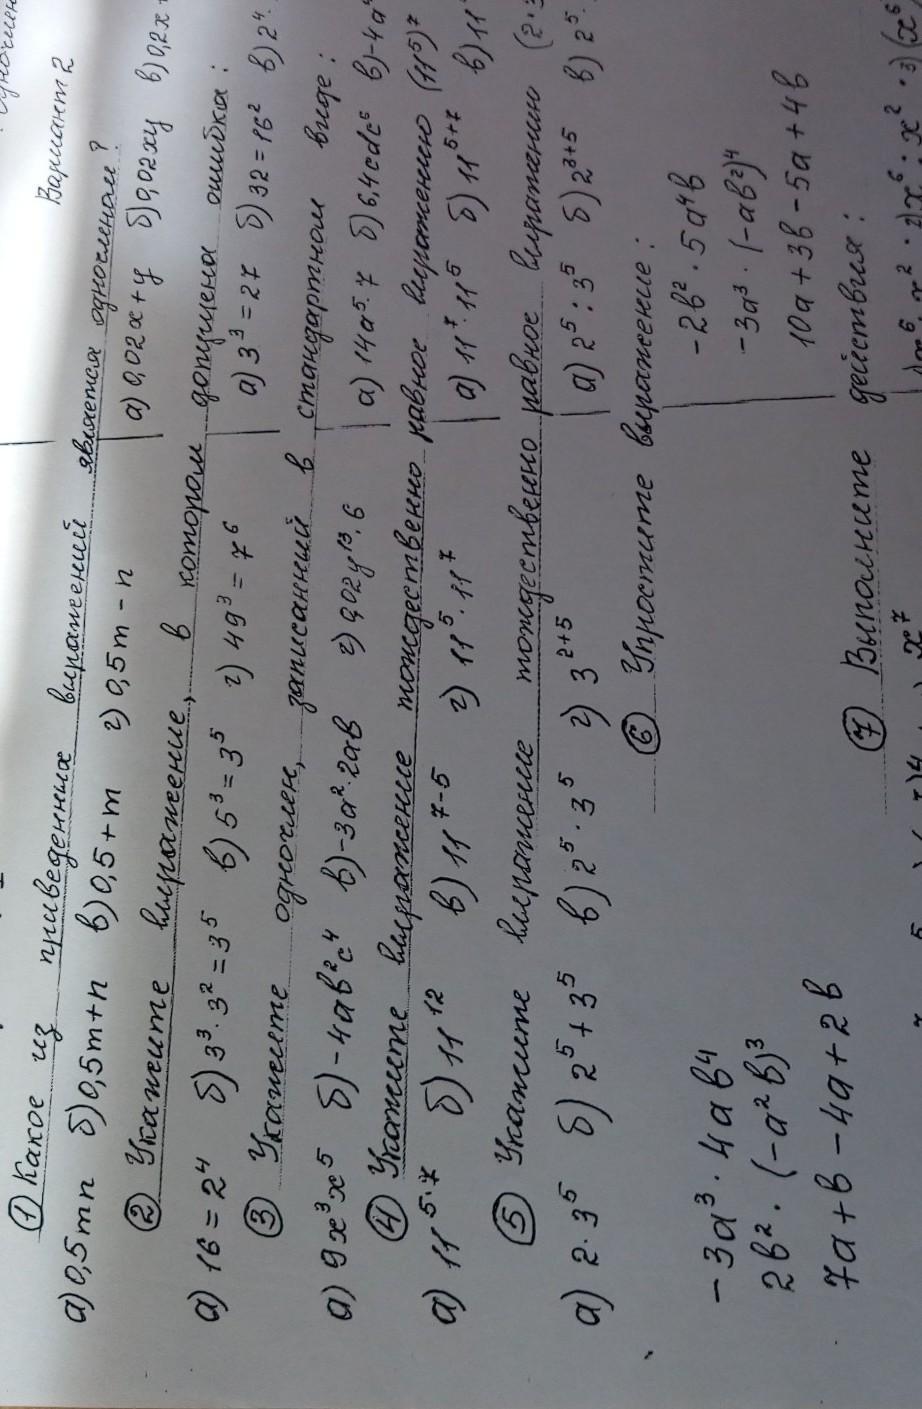 Вариант 2
① Какое из приведенных выражений является одночленом?
а) 0,5mn б) 0,5m+n в) 0,5+m г) 0,5m-n
а) 0,02x+y б) 0,02xy в) 0,2x
② Укажите выражение, в котором допущена ошибка:
а) 16=2⁴ б) 3³·3²=3⁵ в) 5³=3⁵ г) 49³=7⁶
а) 3³=27 б) 32=16² в) 2⁴
③ Укажите одночлен, записанный в стандартном виде:
а) 9x³x⁵ б) -4ab²c⁴ в) -3a²·2ab г) 0,02y¹³·6
а) 14a⁵·7 б) 6,4cdc⁵ в) -4a
④ Укажите выражение тождественно равное выражению (11⁵)⁷
а) 11⁵·⁷ б) 11¹² в) 11⁷⁻⁵ г) 11⁵·11⁷
а) 11⁷·11⁵ б) 11⁵⁺⁷ в) 11
⑤ Укажите выражение тождественно равное выражению (2·
а) 2·3⁵ б) 2⁵+3⁵ в) 2⁵·3⁵ г) 3²⁺⁵
а) 2⁵:3⁵ б) 2³⁺⁵ в) 2⁵
⑥ Упростите выражение:
-3a³·4ab⁴
-2b²·5a⁴b
2b²·(-a²b)³
-3a³·(-ab²)⁴
7a+b-4a+2b
10a+3b-5a+4b
⑦ Выполните действия:
x⁶·x²·